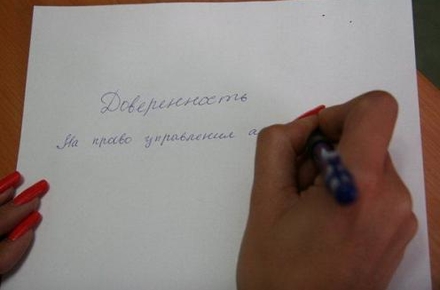 Доверенность
На право управления а